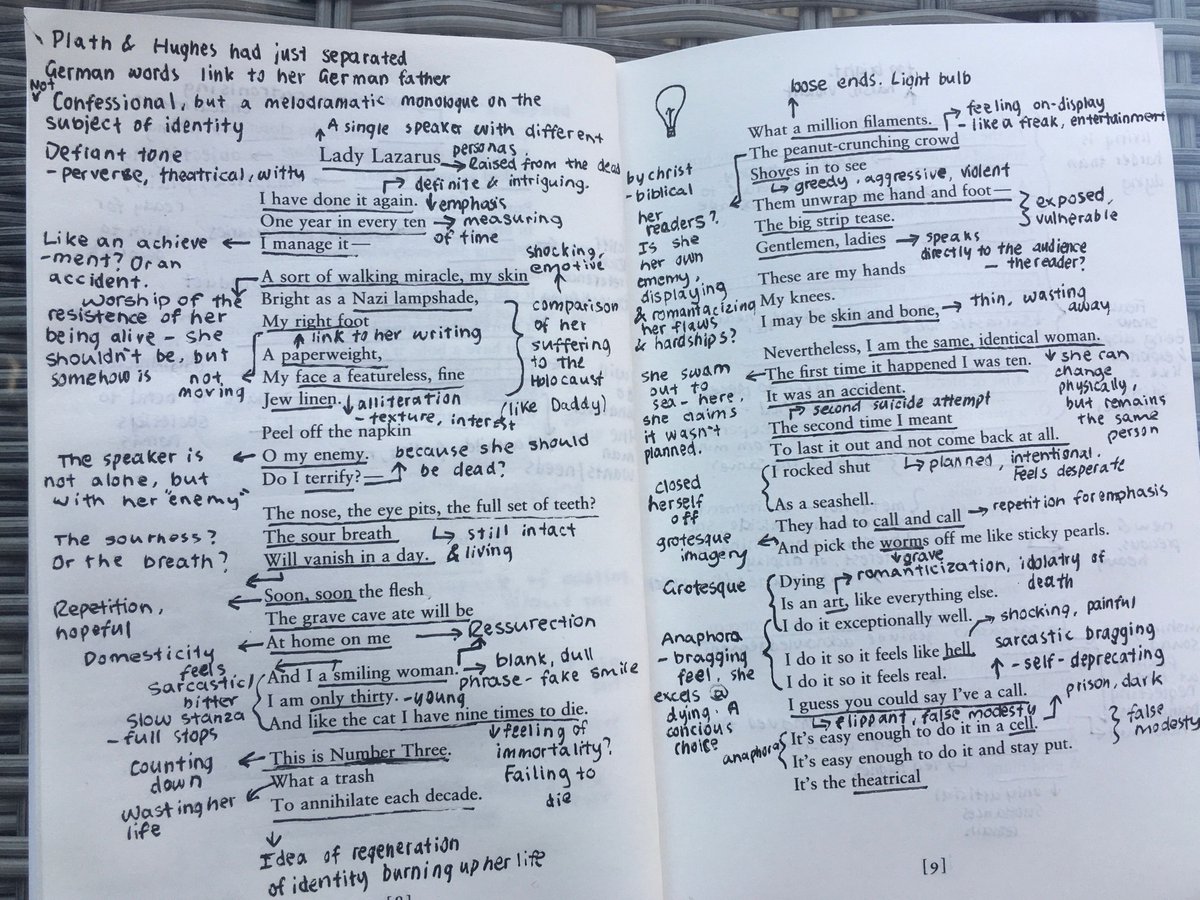 Plath & Hughes had just separated
German words link to her German father
Not
Confessional, but a melodramatic monologue on the
subject of identity
A single speaker with different
personas
Defiant tone
- perverse, theatrical, witty
Lady Lazarus
Raised from the dead
definite & intriguing.
I have done it again.
emphasis
One year in every ten
measuring
of time
I manage it—
Like an achieve
-ment? Or an
accident.
shocking,
emotive
A sort of walking miracle, my skin
worship of the
resistence of her
being alive - she
shouldn't be, but
somehow is
Bright as a Nazi lampshade,
My right foot
link to her writing
comparison
of her
suffering
to the
Holocaust
(like Daddy)
A paperweight,
not
moving
My face a featureless, fine
Jew linen.
alliteration
- texture, interest
Peel off the napkin
O my enemy.
Do I terrify?—
because she should
be dead?
The speaker is
not alone, but
with her "enemy"
The nose, the eye pits, the full set of teeth?
The sour breath
still intact
& living
Will vanish in a day.
The sourness?
Or the breath?
Soon, soon the flesh
Repetition,
hopeful
The grave cave ate will be
At home on me
Ressurection
Domesticity
feels
sarcastic/
bitter
And I a smiling woman.
blank, dull
phrase - fake smile
I am only thirty.
- young
And like the cat I have nine times to die.
Slow stanza
- full stops
feeling of
immortality?
Failing to
die
This is Number Three.
counting
down
What a trash
Wasting her
life
To annihilate each decade.
Idea of regeneration
of identity burning up her life
loose ends. Light bulb
What a million filaments.
feeling on-display
- like a freak, entertainment
The peanut-crunching crowd
by christ
- biblical
Shoves in to see
greedy, aggressive, violent
Them unwrap me hand and foot—
The big strip tease.
exposed,
vulnerable
her
readers?
Is she
her own
enemy,
displaying
& romantacizing
her flaws
& hardships?
Gentlemen, ladies
speaks
directly to the audience
- the reader?
These are my hands
My knees.
I may be skin and bone,
thin, wasting
away
Nevertheless, I am the same, identical woman.
she can
change
physically,
but remains
the same
person
The first time it happened I was ten.
she swam
out to
sea - here,
she claims
it wasn't
planned.
It was an accident.
second suicide attempt
The second time I meant
To last it out and not come back at all.
planned, intentional.
Feels desperate
I rocked shut
As a seashell.
closed
herself
off
They had to call and call
repetition for emphasis
And pick the worms off me like sticky pearls.
grotesque
imagery
grave
Dying
romanticization, idolatry of
death
Grotesque
Is an art, like everything else.
I do it exceptionally well.
shocking, painful
I do it so it feels like hell.
sarcastic bragging
- self-deprecating
I do it so it feels real.
Anaphora
- bragging
feel, she
excels @
dying. A
concious
choice
I guess you could say I've a call.
flippant, false modesty
prison, dark
It's easy enough to do it in a cell.
anaphora
false
modesty
It's easy enough to do it and stay put.
It's the theatrical
[9]